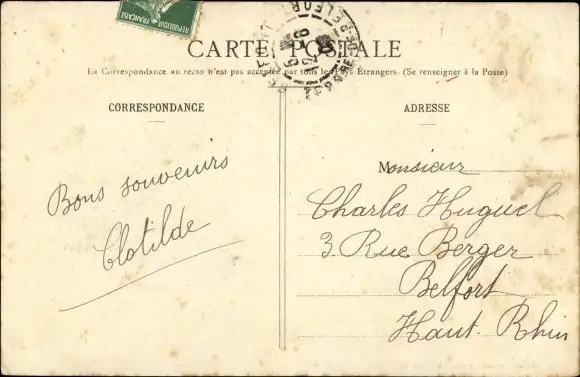 REPUBLIQUE FRANÇAISE
BELFORT
CARTE POSTALE
La Correspondance au recto n'est pas acceptée par tous les Pays Étrangers. (Se renseigner à la Poste)
CORRESPONDANCE
Bons souvenirs
Clotilde
ADRESSE
Monsieur
Charles Huguel
3. Rue Berger
Belfort
Haut. Rhin